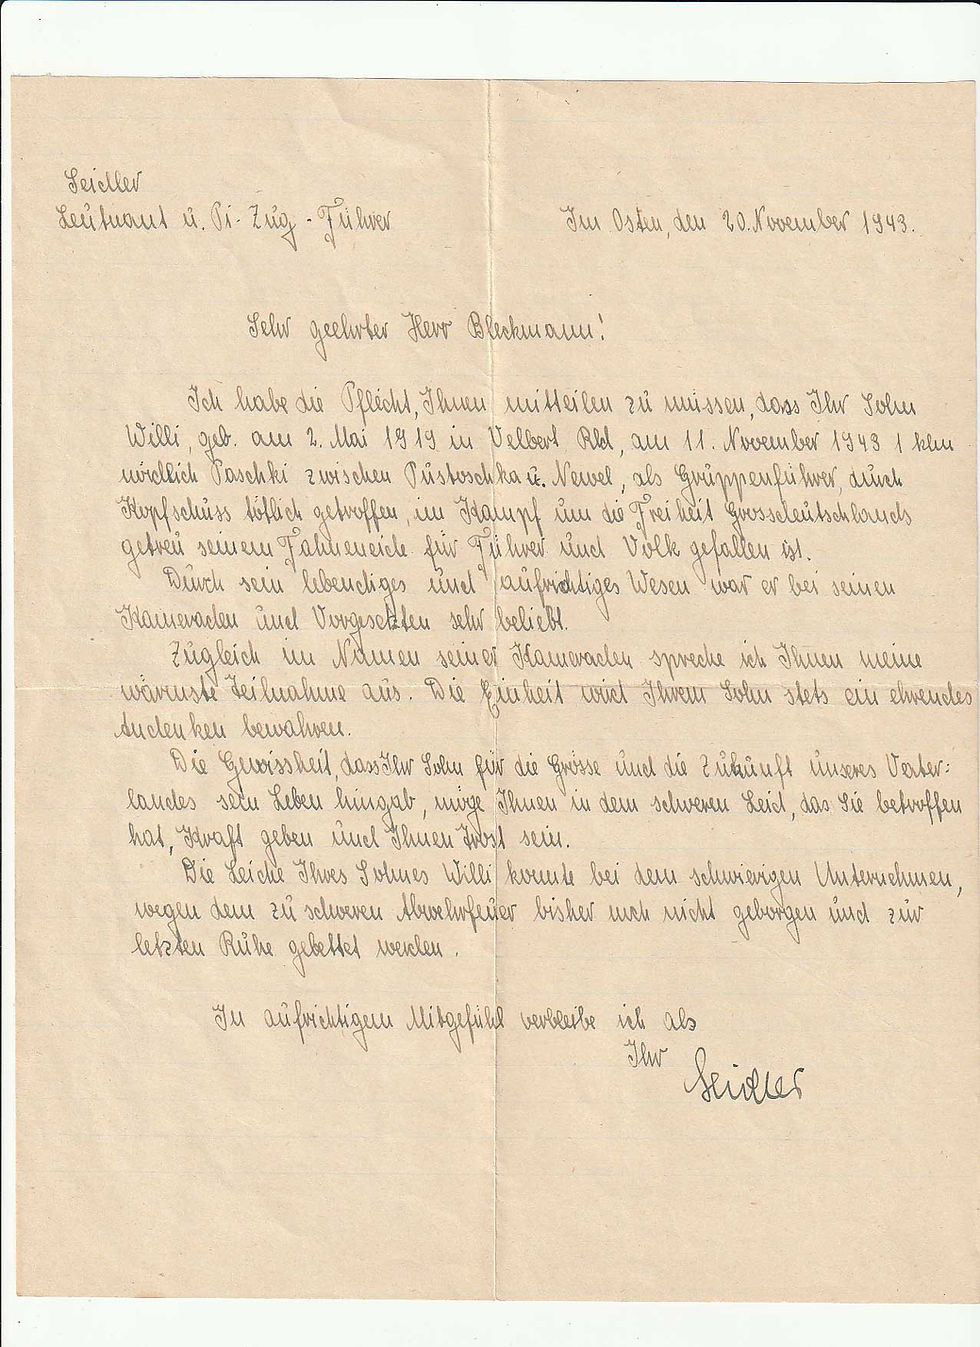 Seidler
Leutnant u. Pi-Zug-Führer
Im Osten, den 20. November 1943.
Sehr geehrter Herr Bleckmann!
Ich habe die Pflicht, Ihnen mitteilen zu müssen, dass Ihr Sohn
Willi, geb. am 2. Mai 1919 in Velbert Rhld, am 11. November 1943 1 klm
nördlich Paschki zwischen Pustoschka u. Newel, als Gruppenführer, durch
Kopfschuss tötlich getroffen, im Kampf um die Freiheit Grossdeutschlands
getreu seinem Fahneneide für Führer und Volk gefallen ist.
Durch sein lebendiges und aufrichtiges Wesen war er bei seinen
Kameraden und Vorgesetzten sehr beliebt.
Zugleich im Namen seiner Kameraden spreche ich Ihnen meine
wärmste Teilnahme aus. Die Einheit wird Ihrem Sohn stets ein ehrendes
Andenken bewahren.
Die Gewissheit, dass Ihr Sohn für die Grösse und die Zukunft unseres Vater:
landes sein Leben hingab, möge Ihnen in dem schweren Leid, das Sie betroffen
hat, Kraft geben und Ihnen Trost sein.
Die Leiche Ihres Sohnes Willi konnte bei dem schwierigen Unternehmen,
wegen dem zu schweren Abwehrfeuer bisher noch nicht geborgen und zur
letzten Ruhe gebettet werden.
In aufrichtigem Mitgefühl verbleibe ich als
Ihr
Seidler